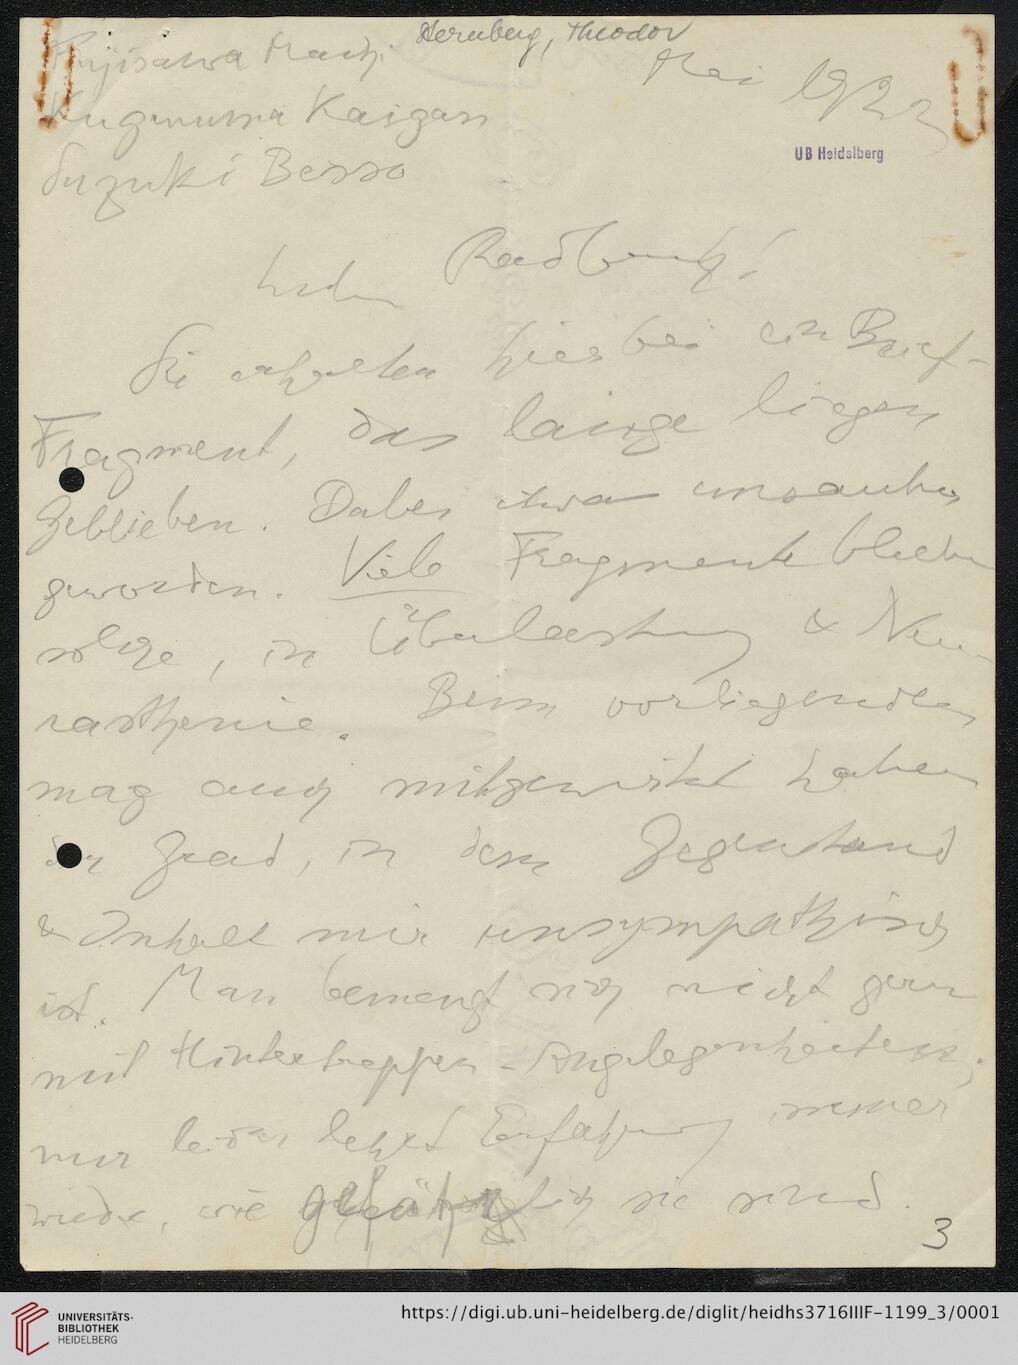 Sternberg, Theodor
Fujisawa Machi
Mai 1923
Kugenuma Kaigan
UB Heidelberg
Suzuki Besso
Lieber Radbruch!
Sie erhalten hierbei ein Brief-
Fragment, das lange liegen
geblieben. Dabei etwas unsauber
geworden. Viele Fragmente blieben
solche, in Überlastung & Neu-
rasthenie. Beim vorliegenden
mag auch mitgewirkt haben
der Grad, in dem Gegenstand
& Inhalt mir unsympathisch
ist. Man bemengt sich nicht gern
mit Hintertreppen-Angelegenheiten;
nur leider lehrt Erfahrung immer
wieder, wie gefährlich sie sind.
3
UNIVERSITÄTS-
BIBLIOTHEK
HEIDELBERG
https://digi.ub.uni-heidelberg.de/diglit/heidhs3716IIIF-1199_3/0001